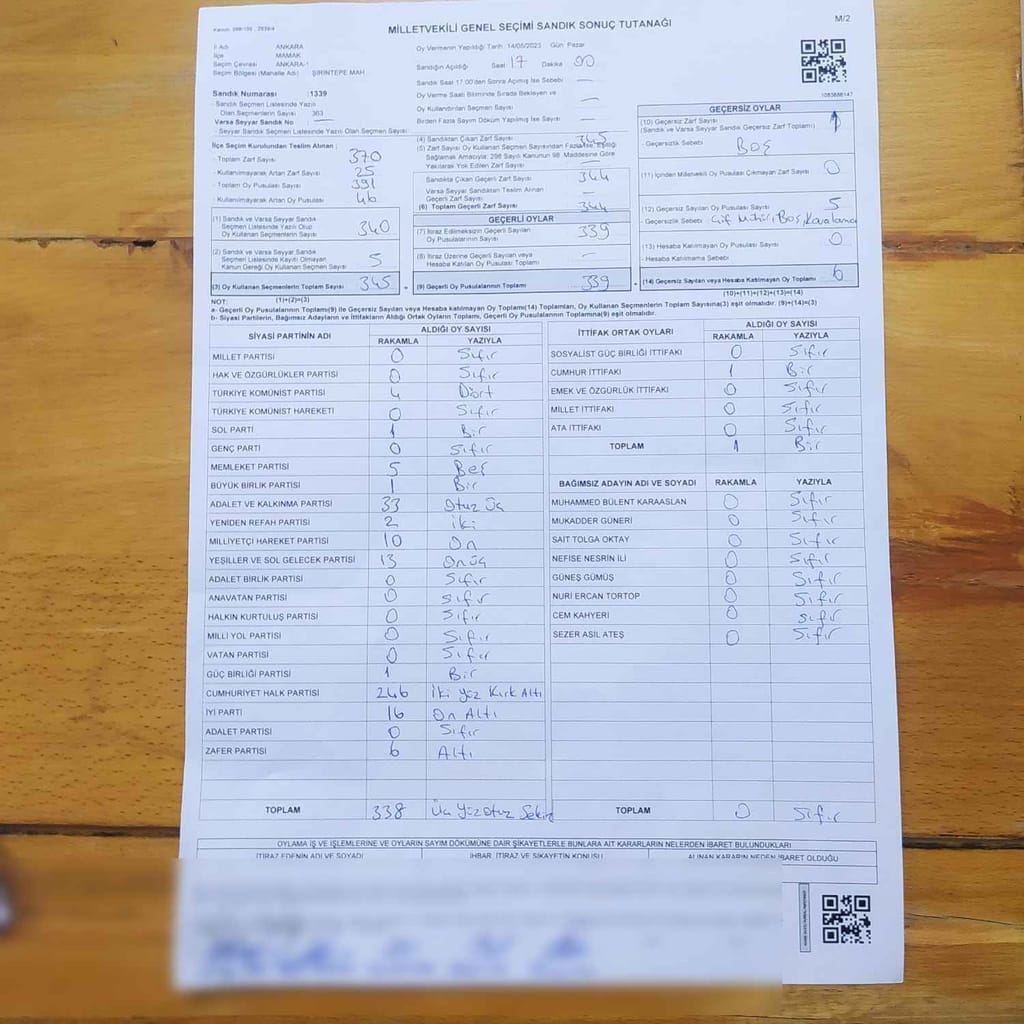 MİLLETVEKİLİ GENEL SEÇİMİ SANDIK SONUÇ TUTANAĞI
M/2
İl Adı ANKARA
İlçe MAMAK
Seçim Çevresi ANKARA-1
Seçim Bölgesi (Mahalle Adı) ŞİRİNTEPE MAH
Sandık Numarası 1339
- Sandık Seçmen Listesinde Yazılı
Olan Seçmenlerin Sayısı 363
Varsa Seyyar Sandık No —
- Seyyar Sandık Seçmen Listesinde Yazılı Olan Seçmen Sayısı
İlçe Seçim Kurulundan Teslim Alınan ;
- Toplam Zarf Sayısı 370
- Kullanılmayarak Artan Zarf Sayısı 25
- Toplam Oy Pusulası Sayısı 391
- Kullanılmayarak Artan Oy Pusulası 46
(1) Sandık ve Varsa Seyyar Sandık
Seçmen Listesinde Yazılı Olup
Oy Kullanan Seçmenlerin Sayısı 340
(2) Sandık ve Varsa Seyyar Sandık
Seçmen Listesinde Kayıtlı Olmayan
Kanun Gereği Oy Kullanan Seçmen Sayısı 5
(3) Oy Kullanan Seçmenlerin Toplam Sayısı 345
(1)+(2)=(3)
Oy Vermenin Yapıldığı Tarih 14/05/2023 Gün Pazar
Sandığın Açıldığı Saat 17 Dakika 00
Sandık Saat 17:00'den Sonra Açılmış İse Sebebi —
Oy Verme Saati Bitiminde Sırada Bekleyen ve
Oy Kullandırılan Seçmen Sayısı —
Birden Fazla Sayım Döküm Yapılmış İse Sayısı —
(4) Sandıktan Çıkan Zarf Sayısı 345
(5) Zarf Sayısı Oy Kullanan Seçmen Sayısından Fazla İse, Eşitliği
Sağlamak Amacıyla; 298 Sayılı Kanunun 98. Maddesine Göre
Yakılarak Yok Edilen Zarf Sayısı —
Sandıkta Çıkan Geçerli Zarf Sayısı 344
Varsa Seyyar Sandıktan Teslim Alınan
Geçerli Zarf Sayısı —
(6) Toplam Geçerli Zarf Sayısı 344
GEÇERLİ OYLAR
(7) İtiraz Edilmeksizin Geçerli Sayılan
Oy Pusulalarının Sayısı 339
(8) İtiraz Üzerine Geçerli Sayılan veya
Hesaba Katılan Oy Pusulası Toplamı —
(9) Geçerli Oy Pusulalarının Toplamı 339
1083888147
GEÇERSİZ OYLAR
(10) Geçersiz Zarf Sayısı
(Sandık ve Varsa Seyyar Sandık Geçersiz Zarf Toplamı) 1
- Geçersizlik Sebebi BOŞ
(11) İçinden Milletvekili Oy Pusulası Çıkmayan Zarf Sayısı 0
(12) Geçersiz Sayılan Oy Pusulası Sayısı 5
- Geçersizlik Sebebi Çift Mühür, Boş, Karalama
(13) Hesaba Katılmayan Oy Pusulası Sayısı 0
- Hesaba Katılmama Sebebi
(14) Geçersiz Sayılan veya Hesaba Katılmayan Oy Toplamı 6
(10)+(11)+(12)+(13)=(14)
NOT:
a- Geçerli Oy Pusulalarının Toplamı(9) ile Geçersiz Sayılan veya Hesaba katılmayan Oy Toplamı(14) Toplamları, Oy Kullanan Seçmenlerin Toplam Sayısına(3) eşit olmalıdır. (9)+(14)=(3)
b- Siyasi Partilerin, Bağımsız Adayların ve İttifakların Aldığı Ortak Oyların Toplamı, Geçerli Oy Pusulalarının Toplamına(9) eşit olmalıdır.
SİYASİ PARTİNİN ADI ALDIĞI OY SAYISI
RAKAMLA YAZIYLA
MİLLET PARTİSİ 0 Sıfır
HAK VE ÖZGÜRLÜKLER PARTİSİ 0 Sıfır
TÜRKİYE KOMÜNİST PARTİSİ 4 Dört
TÜRKİYE KOMÜNİST HAREKETİ 0 Sıfır
SOL PARTİ 1 Bir
GENÇ PARTİ 0 Sıfır
MEMLEKET PARTİSİ 5 Beş
BÜYÜK BİRLİK PARTİSİ 1 Bir
ADALET VE KALKINMA PARTİSİ 33 Otuz Üç
YENİDEN REFAH PARTİSİ 2 İki
MİLLİYETÇİ HAREKET PARTİSİ 10 On
YEŞİLLER VE SOL GELECEK PARTİSİ 13 Onüç
ADALET BİRLİK PARTİSİ 0 Sıfır
ANAVATAN PARTİSİ 0 Sıfır
HALKIN KURTULUŞ PARTİSİ 0 Sıfır
MİLLİ YOL PARTİSİ 0 Sıfır
VATAN PARTİSİ 0 Sıfır
GÜÇ BİRLİĞİ PARTİSİ 1 Bir
CUMHURİYET HALK PARTİSİ 246 İki Yüz Kırk Altı
İYİ PARTİ 16 On Altı
ADALET PARTİSİ 0 Sıfır
ZAFER PARTİSİ 6 Altı
TOPLAM 338 Üç Yüz Otuz Sekiz
İTTİFAK ORTAK OYLARI ALDIĞI OY SAYISI
RAKAMLA YAZIYLA
SOSYALİST GÜÇ BİRLİĞİ İTTİFAKI 0 Sıfır
CUMHUR İTTİFAKI 1 Bir
EMEK VE ÖZGÜRLÜK İTTİFAKI 0 Sıfır
MİLLET İTTİFAKI 0 Sıfır
ATA İTTİFAKI 0 Sıfır
TOPLAM 1 Bir
BAĞIMSIZ ADAYIN ADI VE SOYADI RAKAMLA YAZIYLA
MUHAMMED BÜLENT KARAASLAN 0 Sıfır
MUKADDER GÜNERİ 0 Sıfır
SAİT TOLGA OKTAY 0 Sıfır
NEFİSE NESRİN İLİ 0 Sıfır
GÜNEŞ GÜMÜŞ 0 Sıfır
NURİ ERCAN TORTOP 0 Sıfır
CEM KAHYERİ 0 Sıfır
SEZER ASİL ATEŞ 0 Sıfır
TOPLAM 0 Sıfır
OYLAMA İŞ VE İŞLEMLERİNE VE OYLARIN SAYIM DÖKÜMÜNE DAİR ŞİKAYETLERLE BUNLARA AİT KARARLARIN NELERDEN İBARET BULUNDUKLARI
İTİRAZ EDENİN ADI VE SOYADI İHBAR, İTİRAZ VE ŞİKAYETİN KONUSU ALINAN KARARIN NEDEN İBARET OLDUĞU